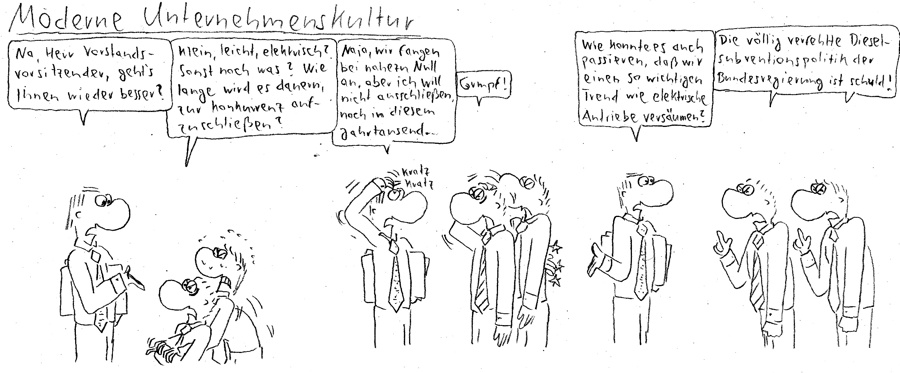 Moderne Unternehmenskultur
Na, Herr Vorstands-
vorsitzender, geht's
Ihnen wieder besser?
Klein, leicht, elektrisch?
Sonst noch was? Wie
lange wird es dauern,
zur Konkurrenz auf-
zuschließen?
Naja, wir fangen
bei nahezu Null
an, aber ich will
nicht ausschließen,
noch in diesem
Jahrtausend...
Grmpf!
Kratz
Kratz
Wie konnte es auch
passieren, daß wir
einen so wichtigen
Trend wie elektrische
Antriebe versäumen?
Die völlig verfehlte Diesel-
subventionspolitik der
Bundesregierung ist schuld!